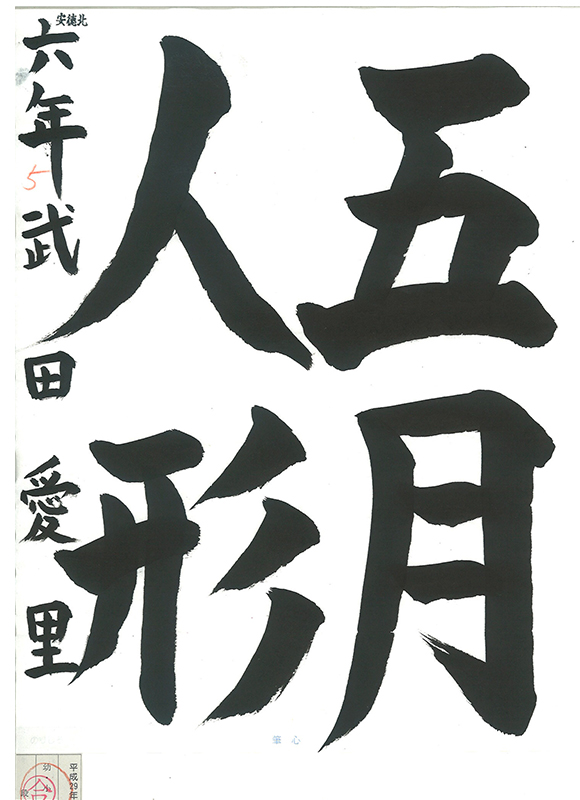 五月
人形
安徳北
六年武田愛里
5
心筆
平成29年
幼